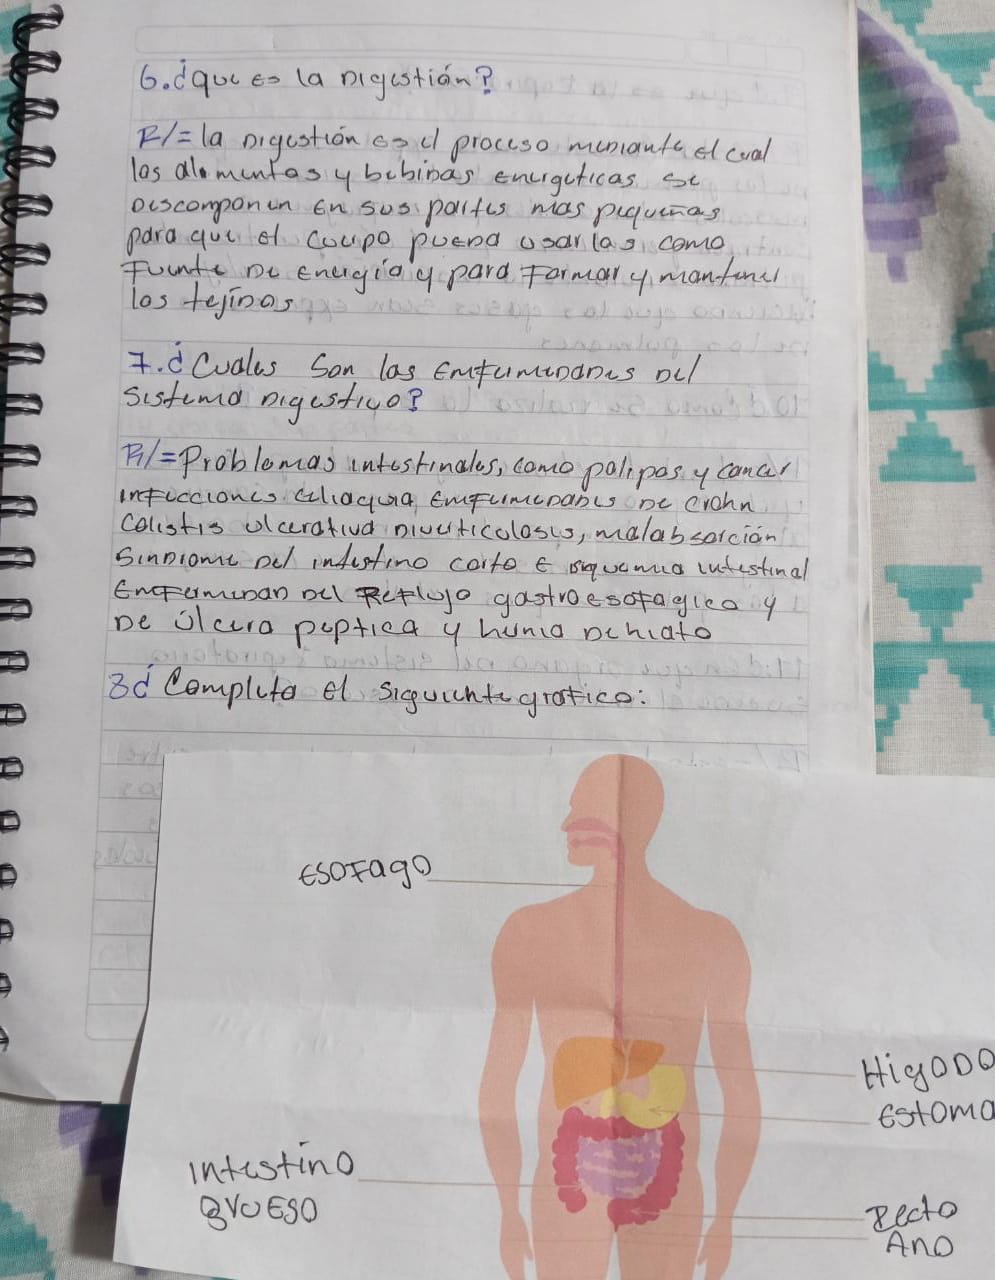 6. ¿que es la Digestión?
R/= la Digestión es el proceso mediante el cual
los alimentos y bebidas energeticas se
Descomponen en sus partes mas pequeñas
para que el Cuerpo pueda usarlas como
Fuente De energía y para Formar y mantener
los tejidos
7. ¿Cuales Son las Enfermedades Del
Sistema Digestivo?
R/= Problemas intestinales, como polipos y cancer
infecciones celiaquia Enfermedades De Crohn
Colistis ulcerativa Diverticulosis, malabsorción
Sindrome Del intestino corto E isquemia intestinal
Enfermedad Del Reflujo gastroesofagico y
De úlcera peptica y hernia De hiato
8¿ Completa el siguiente grafico:
ESOFago
HigaDo
Estoma
Intestino
gruESO
Recto
Ano